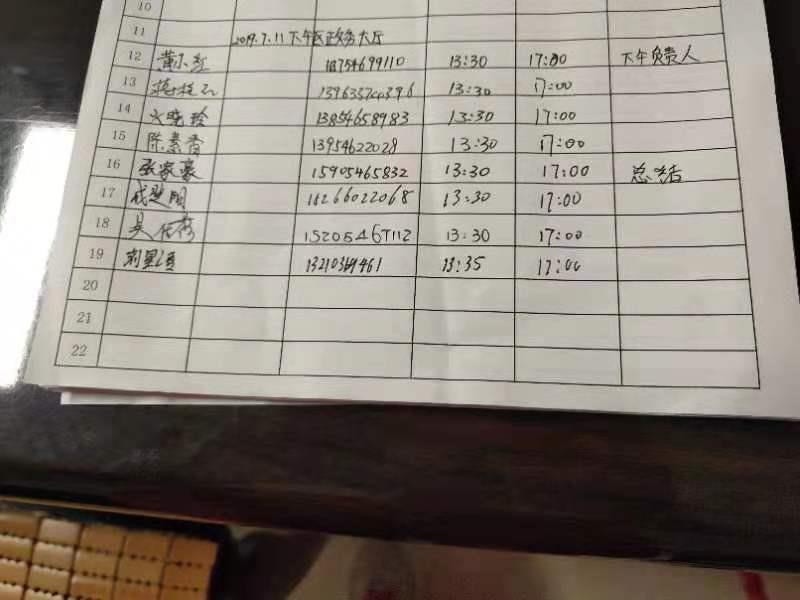 10
11 2019.7.11下午区政务大厅
12 黄小红 18754699110 13:30 17:00 下午负责人
13 13963574396 13:30 17:00
14 火晓玲 13854658983 13:30 17:00
15 陈素香 13954622028 13:30 17:00
16 张家豪 15905465832 13:30 17:00 总结
17 18266022068 13:30 17:00
18 15205467112 13:30 17:00
19 13:35 17:00
20
21
22